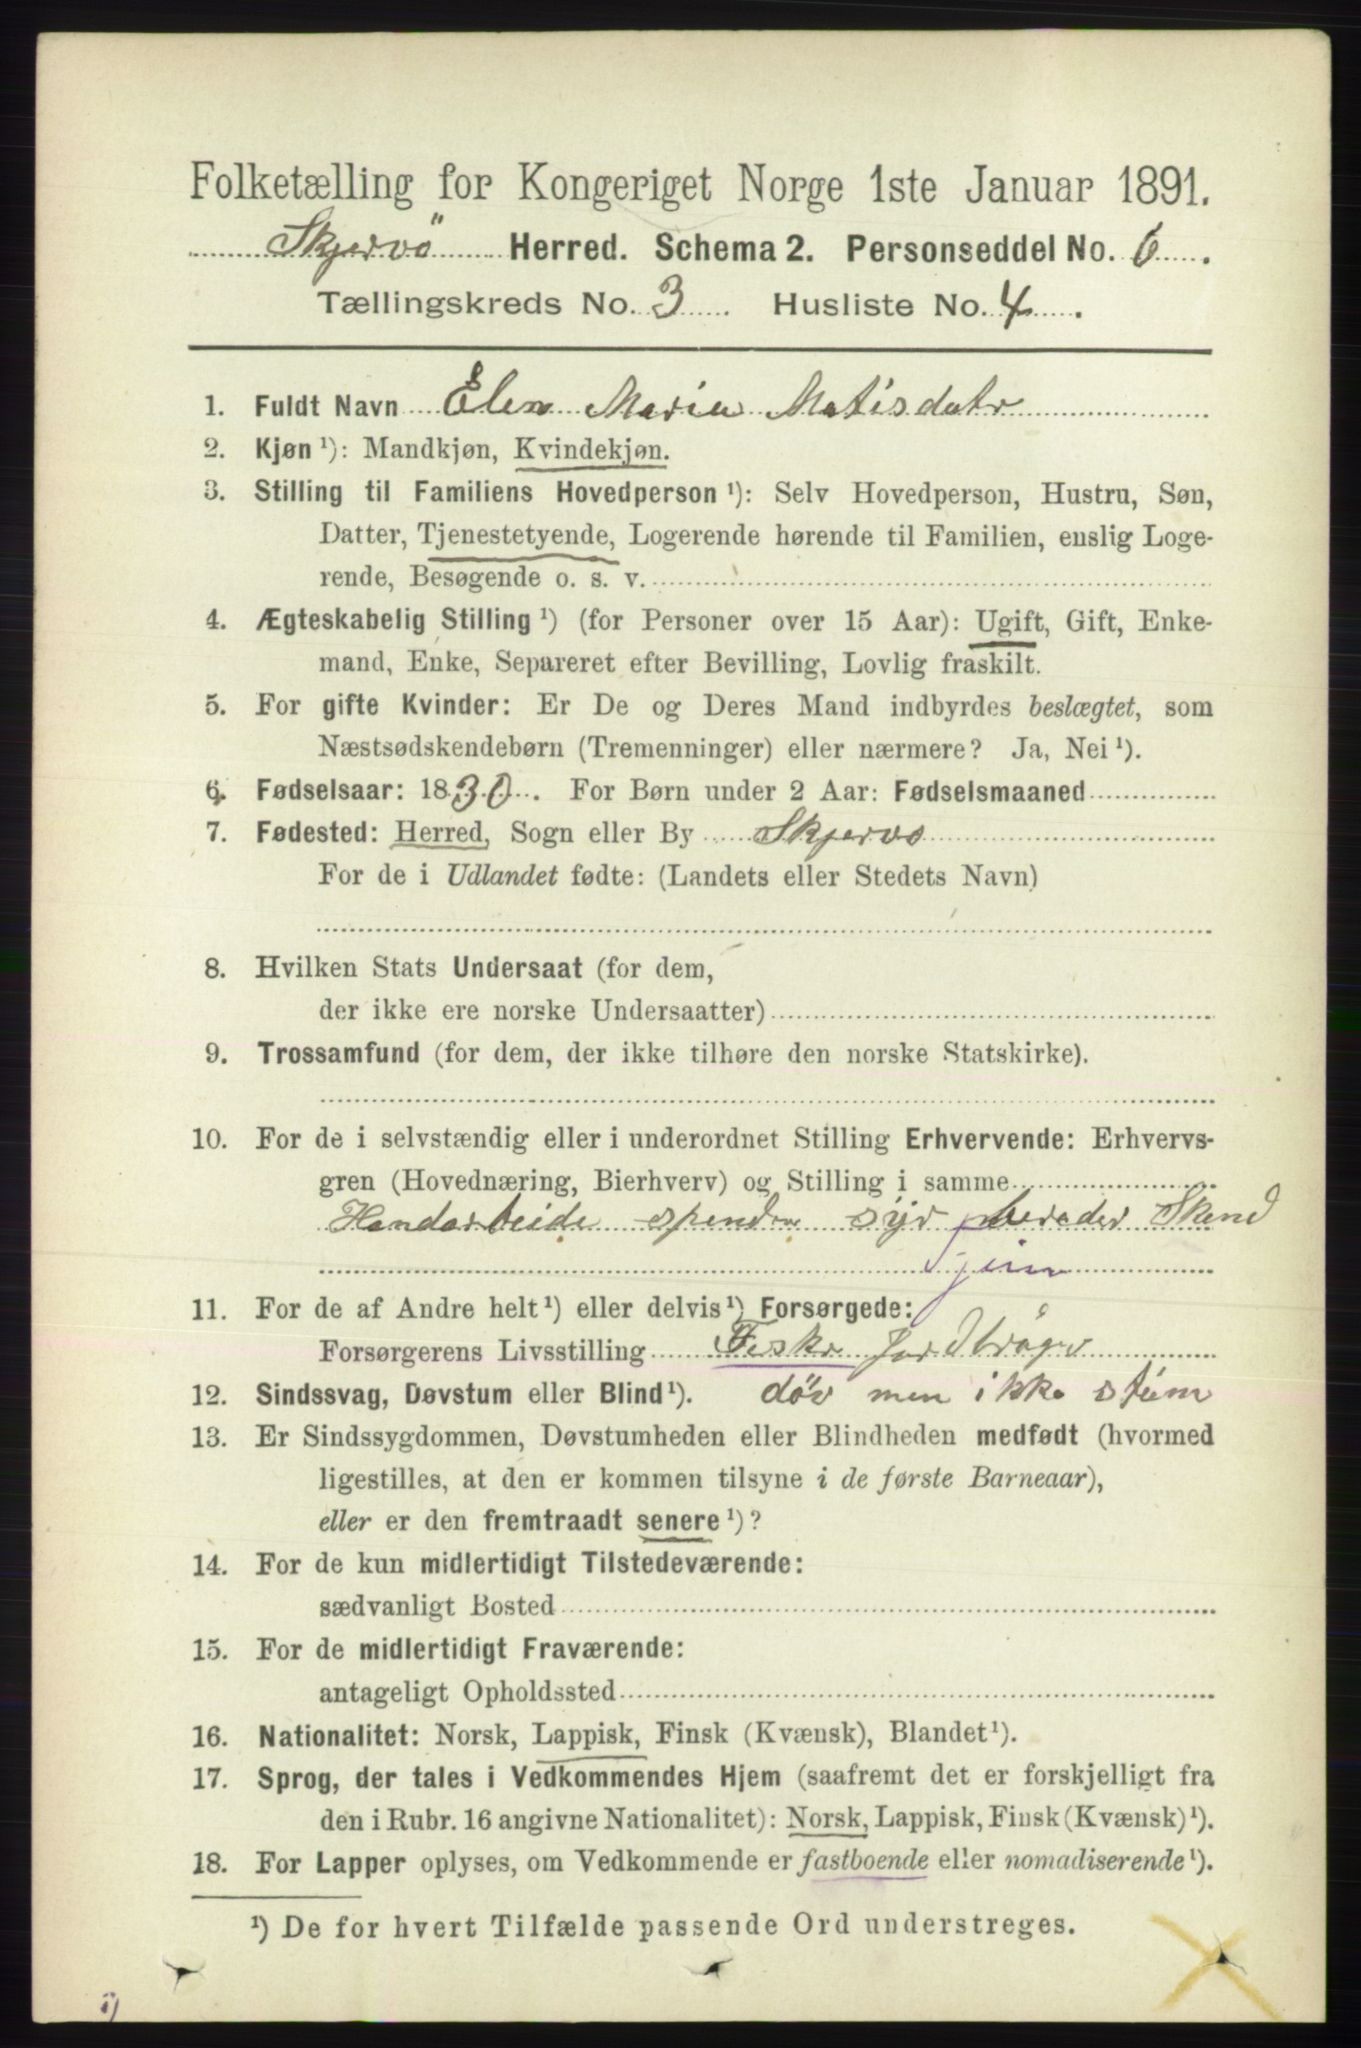 Folketælling for Kongeriget Norge 1ste Januar 1891.
Skjervö Herred. Schema 2. Personseddel No. 6.
Tællingskreds No. 3. Husliste No. 4.
1. Fuldt Navn Elen Maria Matisdatr
2. Kjøn ¹): Mandkjøn, Kvindekjøn.
3. Stilling til Familiens Hovedperson ¹): Selv Hovedperson, Hustru, Søn,
Datter, Tjenestetyende, Logerende hørende til Familien, enslig Loge-
rende, Besøgende o. s. v.
4. Ægteskabelig Stilling ¹) (for Personer over 15 Aar): Ugift, Gift, Enke-
mand, Enke, Separeret efter Bevilling, Lovlig fraskilt.
5. For gifte Kvinder: Er De og Deres Mand indbyrdes beslægtet, som
Næstsødskendebørn (Tremenninger) eller nærmere? Ja, Nei ¹).
6. Fødselsaar: 1830. For Børn under 2 Aar: Fødselsmaaned
7. Fødested: Herred, Sogn eller By Skjervo
For de i Udlandet fødte: (Landets eller Stedets Navn)
8. Hvilken Stats Undersaat (for dem,
der ikke ere norske Undersaatter)
9. Trossamfund (for dem, der ikke tilhøre den norske Statskirke).
10. For de i selvstændig eller i underordnet Stilling Erhvervende: Erhvervs-
gren (Hovednæring, Bierhverv) og Stilling i samme
Handarbeide spender syr bereder Skend
11. For de af Andre helt ¹) eller delvis ¹) Forsørgede:
Forsørgerens Livsstilling Feskr Jordbröger
12. Sindssvag, Døvstum eller Blind ¹). döv men ikke stum
13. Er Sindssygdommen, Døvstumheden eller Blindheden medfødt (hvormed
ligestilles, at den er kommen tilsyne i de første Barneaar),
eller er den fremtraadt senere ¹)?
14. For de kun midlertidigt Tilstedeværende:
sædvanligt Bosted
15. For de midlertidigt Fraværende:
antageligt Opholdssted
16. Nationalitet: Norsk, Lappisk, Finsk (Kvænsk), Blandet ¹).
17. Sprog, der tales i Vedkommendes Hjem (saafremt det er forskjelligt fra
den i Rubr. 16 angivne Nationalitet): Norsk, Lappisk, Finsk (Kvænsk) ¹).
18. For Lapper oplyses, om Vedkommende er fastboende eller nomadiserende ¹).
¹) De for hvert Tilfælde passende Ord understreges.